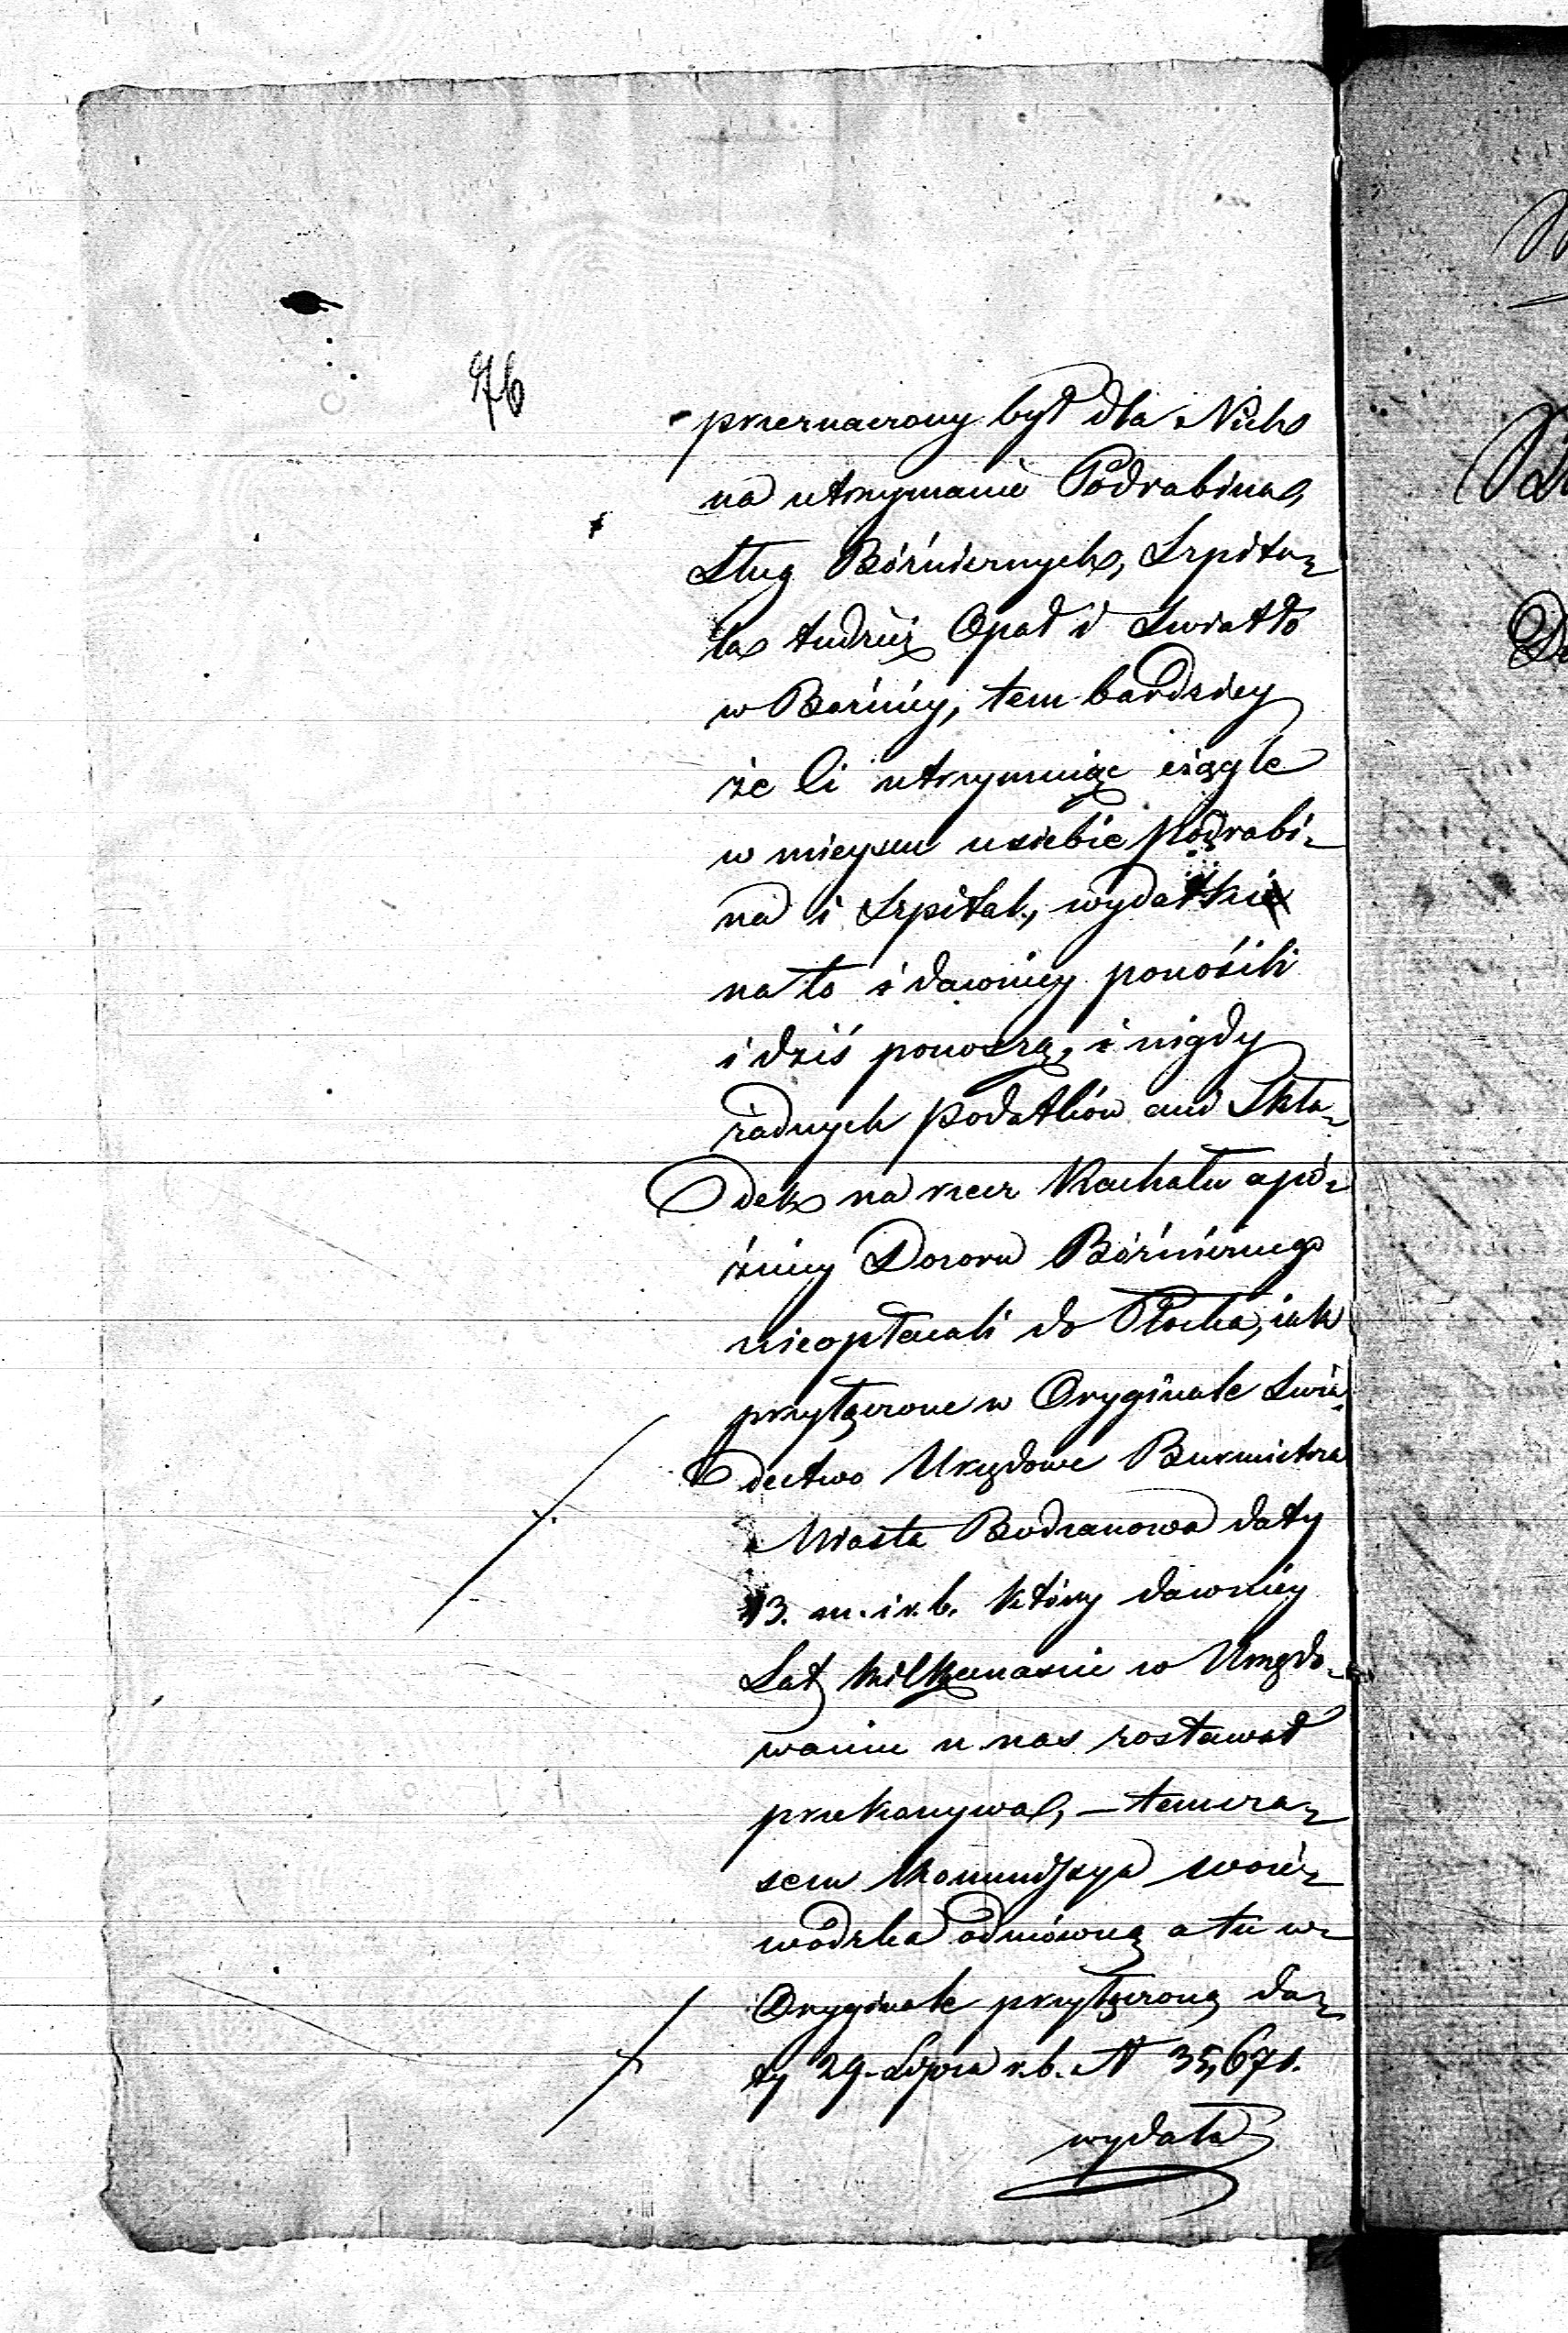 76
przeznaczony był dla Nich
na utrzymanie Podrabina,
Sług Bóżniczych, Szpita-
la tudzież Opał i Swiatło
w Bożnicy, tem bardziey
że Ci utrzymuiąc ciągle
w mieyscu u siebie Podrabi-
na i Szpital, wydatki
na to i dawniey ponośili
i dziś ponoszą, i nigdy
żadnych podatków ani Skła-
dek na rzecz Kachału a pó-
źniey Dozoru Bóźniczego
nieopłacali do Płocka, iak
przyłączone w Oryginale Swia-
dectwo Urzędowe Burmistrza
Miasta Bodzanowa daty
13. m. i r. b. który dawniey
Lat kilkanaście w Urzędo-
waniu u nas zostawał
przekonywa, – temcza-
sem Kommissya Woie-
wódzka odmówną a tu w
Oryginale przyłączoną da-
ty 29. Lipca r. b. N 35,671.
wydała